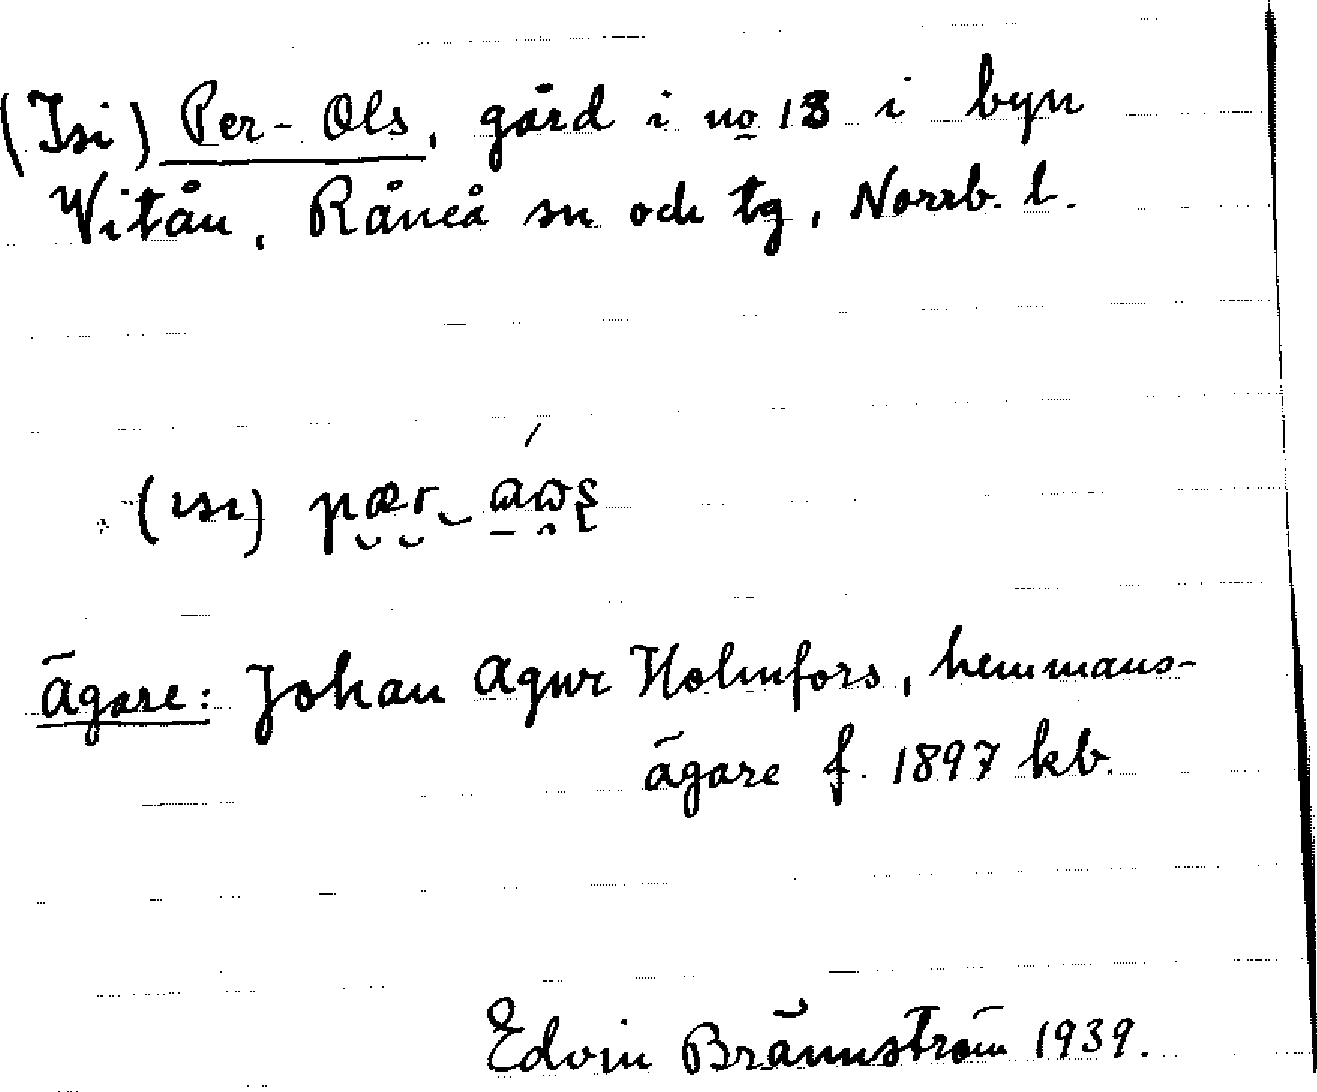 (Isi) Per-Ols, gård i no 13 i byn
Witån, Råneå sn och tg, Norrb. l.
(ısı) pær
ägare: Johan Agur Holmfors, hemmans-
ägare f. 1897 kb.
Edvin Brännström 1939.